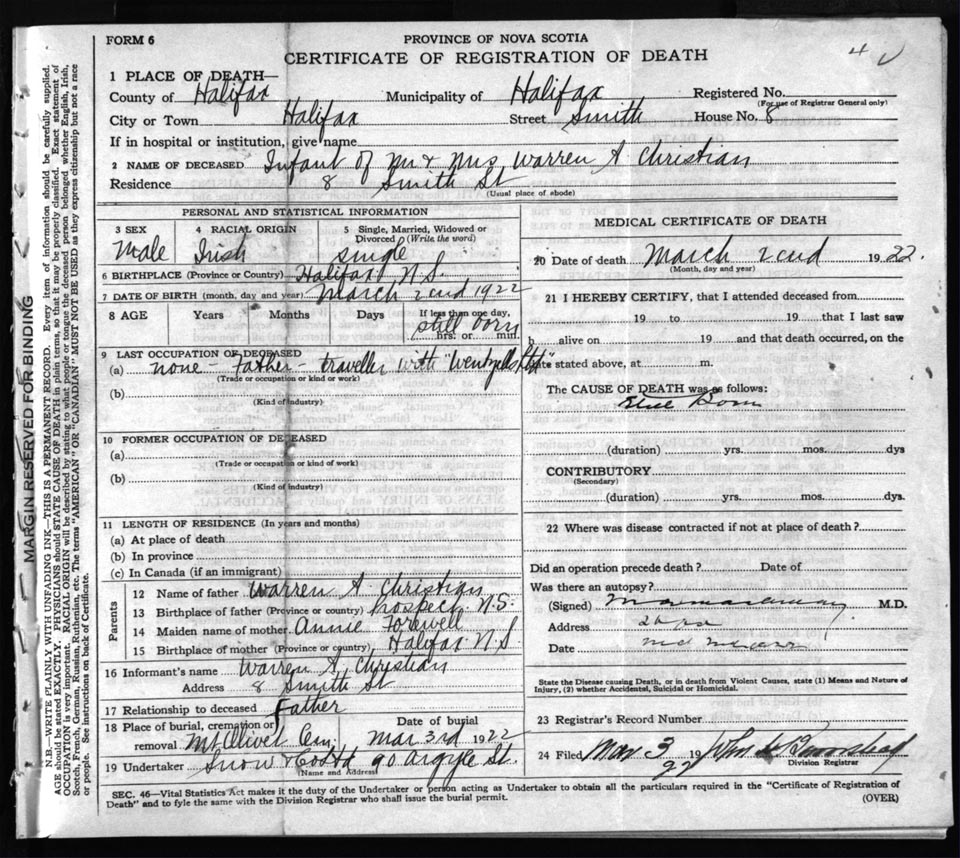 FORM 6
PROVINCE OF NOVA SCOTIA
CERTIFICATE OF REGISTRATION OF DEATH
4
1 PLACE OF DEATH—
County of Halifax Municipality of Halifax Registered No.
(For use of Registrar General only)
City or Town Halifax Street Smith House No. 8
If in hospital or institution, give name
2 NAME OF DECEASED Infant of Mr & Mrs Warren A Christian
Residence 8 Smith St
(Usual place of abode)
PERSONAL AND STATISTICAL INFORMATION
3 SEX 4 RACIAL ORIGIN 5 Single, Married, Widowed or Divorced (Write the word)
Male Irish single
6 BIRTHPLACE (Province or Country) Halifax N.S.
7 DATE OF BIRTH (month, day and year) March 2cnd 1922
8 AGE Years Months Days If less than one day, hrs. or min.
still born
9 LAST OCCUPATION OF DECEASED
(a) none - Father - traveller with "Wentzells Ltd"
(Trade or occupation or kind of work)
(b)
(Kind of industry)
10 FORMER OCCUPATION OF DECEASED
(a)
(Trade or occupation or kind of work)
(b)
(Kind of industry)
11 LENGTH OF RESIDENCE (In years and months)
(a) At place of death
(b) In province
(c) In Canada (if an immigrant)
Parents
12 Name of father Warren A. Christian
13 Birthplace of father (Province or country) Prospect N.S.
14 Maiden name of mother Annie Forewell
15 Birthplace of mother (Province or country) Halifax N.S
16 Informant's name Warren A. Christian
Address 8 Smith St
17 Relationship to deceased Father
18 Place of burial, cremation or removal Mt Olivet Cem. Date of burial Mar 3rd 1922
19 Undertaker Snow & Co Ltd 90 Argyle St.
(Name and Address)
MEDICAL CERTIFICATE OF DEATH
20 Date of death March 2cnd 1922.
(Month, day and year)
21 I HEREBY CERTIFY, that I attended deceased from
19 to 19 that I last saw
h alive on 19 and that death occurred, on the
date stated above, at m.
The CAUSE OF DEATH was as follows:
Still Born
(duration) yrs. mos. dys
CONTRIBUTORY
(Secondary)
(duration) yrs. mos. dys.
22 Where was disease contracted if not at place of death?
Did an operation precede death? Date of
Was there an autopsy?
(Signed) M.D.
Address
Date
State the Disease causing Death, or in death from Violent Causes, state (1) Means and Nature of Injury, (2) whether Accidental, Suicidal or Homicidal.
23 Registrar's Record Number
24 Filed Mar 3 1922
Division Registrar
SEC. 46—Vital Statistics Act makes it the duty of the Undertaker or person acting as Undertaker to obtain all the particulars required in the "Certificate of Registration of
Death" and to fyle the same with the Division Registrar who shall issue the burial permit.
(OVER)
MARGIN RESERVED FOR BINDING
N.B.—WRITE PLAINLY, WITH UNFADING INK—THIS IS A PERMANENT RECORD. Every item of information should be carefully supplied.
AGE should be stated EXACTLY. PHYSICIANS should STATE CAUSE OF DEATH in plain terms, so that it may be properly classified. Exact statement of
OCCUPATION is very important. RACIAL ORIGIN will be described by stating to what people or tongue the deceased person belonged whether English, Irish,
Scotch, French, German, Russian, Ruthenian, etc. The terms "AMERICAN" OR "CANADIAN" MUST NOT BE USED as they express citizenship but not a race
or people. See instructions on back of Certificate.